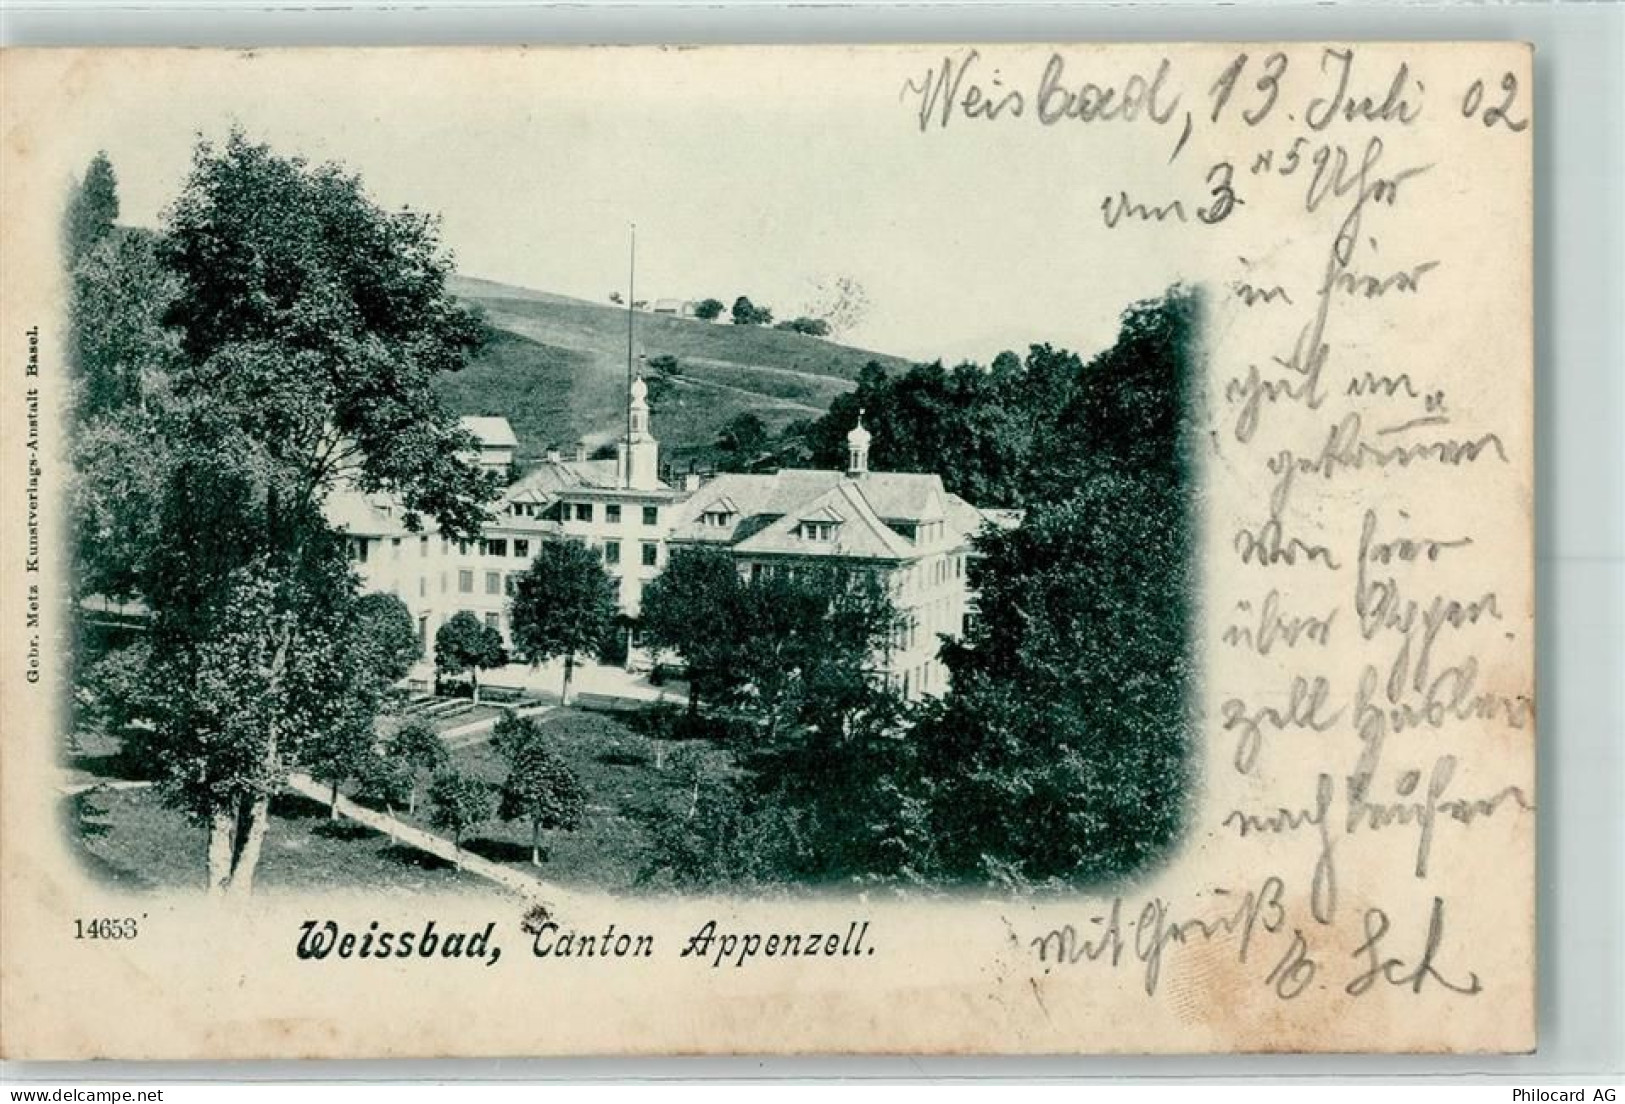 Weisbad, 13. Juli 02
um 3 45 Uhr
in hier
gut an„
gekom̅en
von hier
über Appen
zell
nach
mit Gruß
E. Sch
Gebr. Metz Kunstverlags-Anstalt Basel.
14653
Weissbad, Canton Appenzell.
Philocard AG